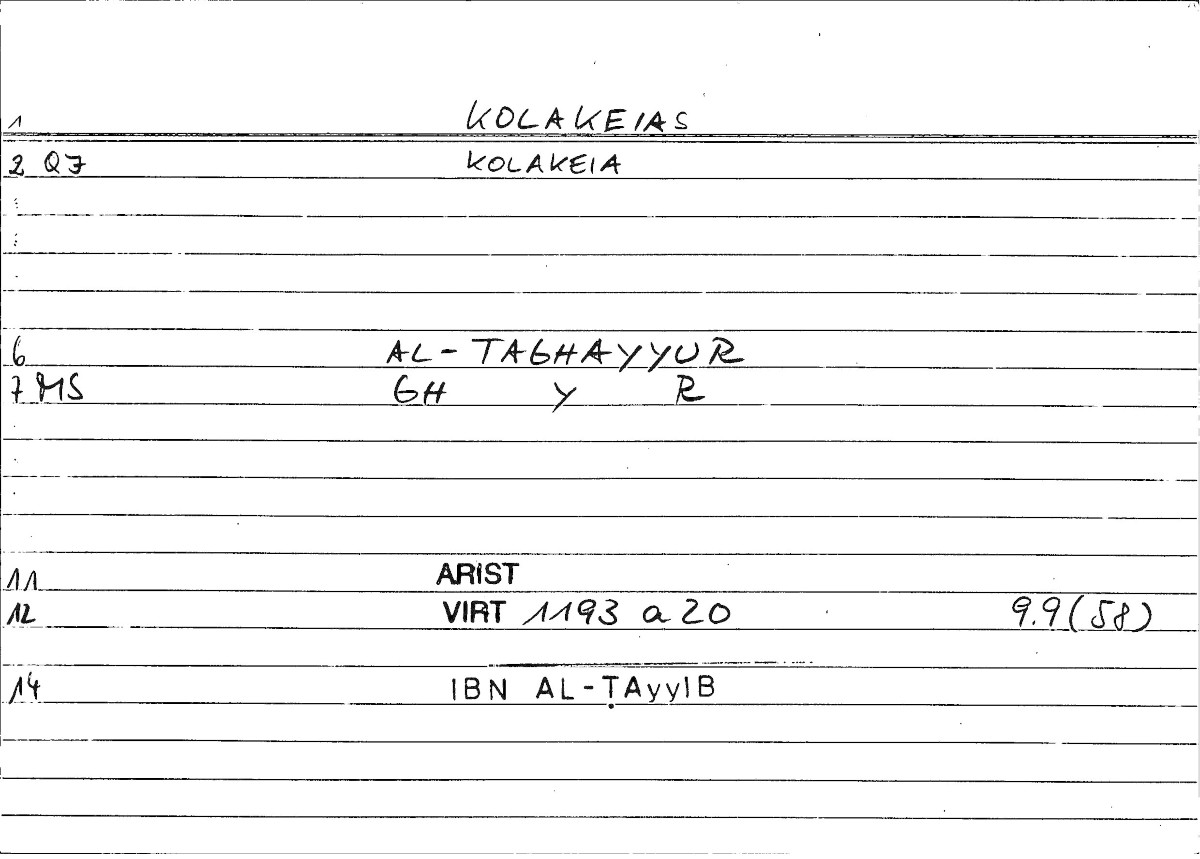 1 KOLAKEIAS
2 QF KOLAKEIA
6 AL-TAGHAYYUR
7 MS GH Y R
11 ARIST
12 VIRT 1193 a 20 9.9(58)
14 IBN AL-ṬAyyIB